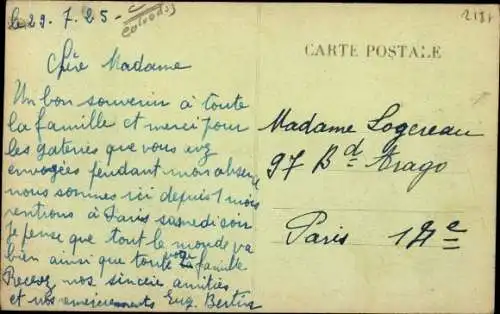 le 29.7.25-
Calvados
2181
Chère Madame
CARTE POSTALE
Un bon souvenir à toute
la famille et merci pour
les gateries que vous avez
envoyées pendant mon absence
nous sommes ici depuis 1 mois
rentrons à Paris samedi soir
Je pense que tout le monde va
bien ainsi que toute votre famille
Recevez nos sincère amitiés
et nos remerciements Eug. Bertin
Madame Logereau
97 Bd Arago
Paris 14e